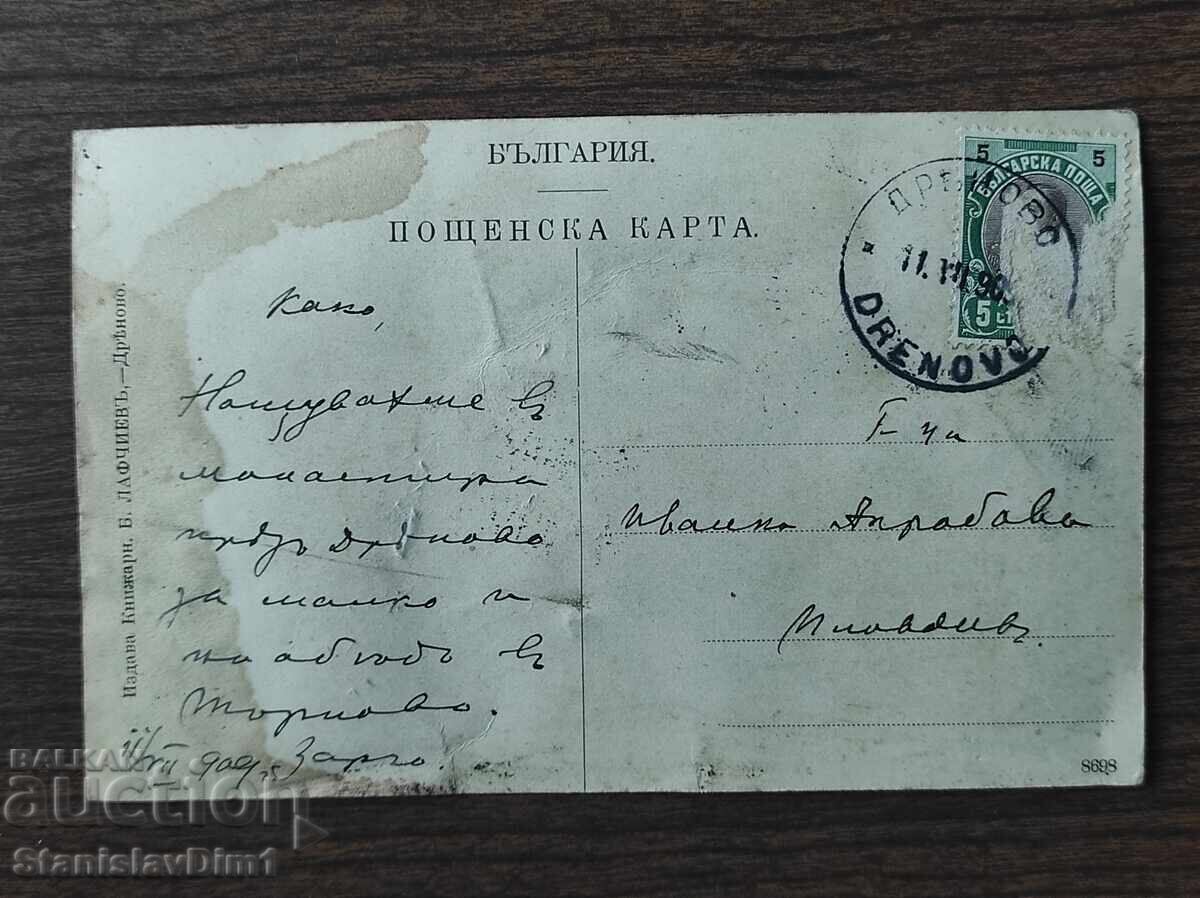 БЪЛГАРИЯ.
ПОЩЕНСКА КАРТА.
5 5
БЪЛГАРСКА ПОЩА
5 СТ
ДРЕНОВО
11.VII.909
DRENOVO
Како,
Нощувахме въ
монастира
предъ Дрѣново
за малко и
на обѣдъ въ
Търново.
11/VII 909.
Г-ца
Иванка
Пловдивъ
Издава Книжарн. Б. ЛАФЧИЕВЪ,—Дрѣново.
8698
BALKAN
auction
StanislavDim1